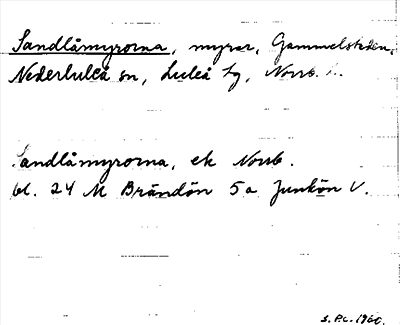 Sandlåmyrorna, myrar, Gammelstaden,
Nederluleå sn, Luleå tg, Norrb. l.
Sandlåmyrorna, ek Norrb.
bl. 24 M Brändön 5a Junkön V.
S.P.L. 1960.